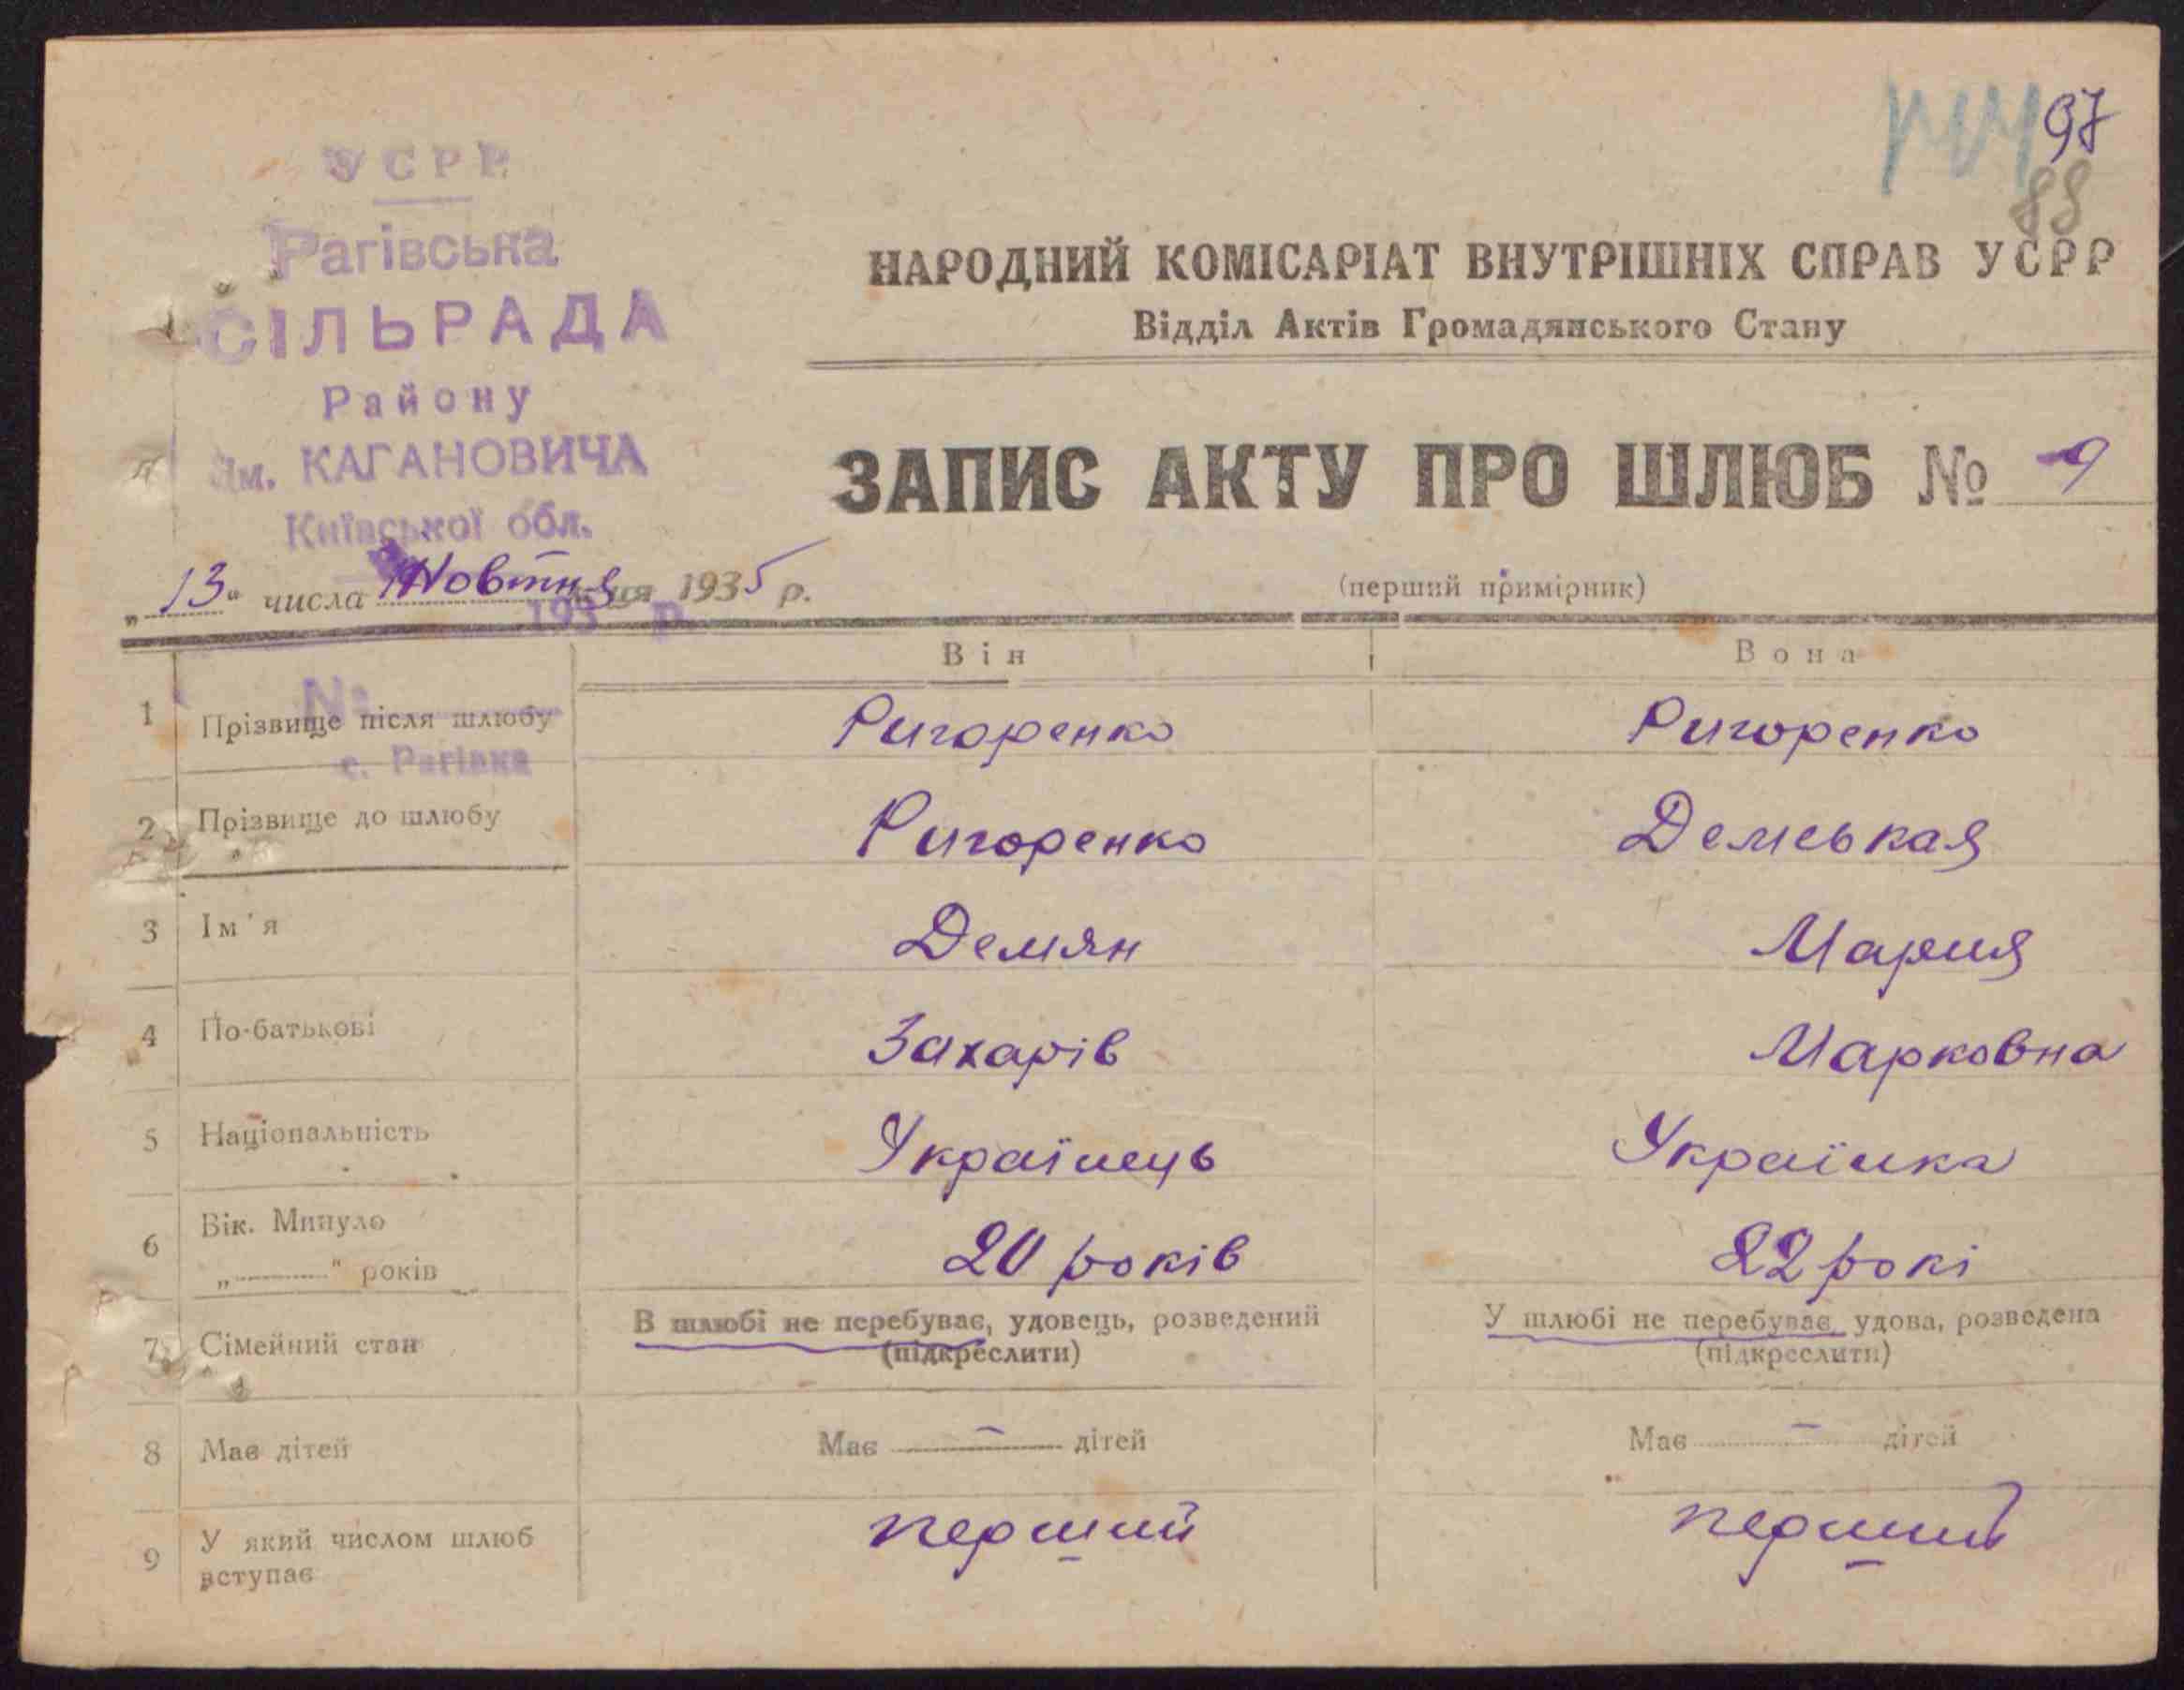 97
88
УСРР
Рагівська
СІЛЬРАДА
Району
Ім. КАГАНОВИЧА
Київської обл.
193 р.
№
с. Рагівка
НАРОДНИЙ КОМІСАРІАТ ВНУТРІШНІХ СПРАВ УСРР
Відділ Актів Громадянського Стану
ЗАПИС АКТУ ПРО ШЛЮБ № 9
„13" числа Жовтня 1935 р.
(перший примірник)
Він Вона
1 Прізвище після шлюбу Ригоренко Ригоренко
2 Прізвище до шлюбу Ригоренко
3 Ім'я Демян Мария
4 По-батькові Захарів Марковна
5 Національність Українець Українка
6 Вік. Минуло
„ " років 20 років 22 рокі
7 Сімейний стан В шлюбі не перебуває, удовець, розведений У шлюбі не перебуває, удова, розведена
(підкреслити) (підкреслити)
8 Має дітей Має – дітей Має – дітей
9 У який числом шлюб
вступає перший перший